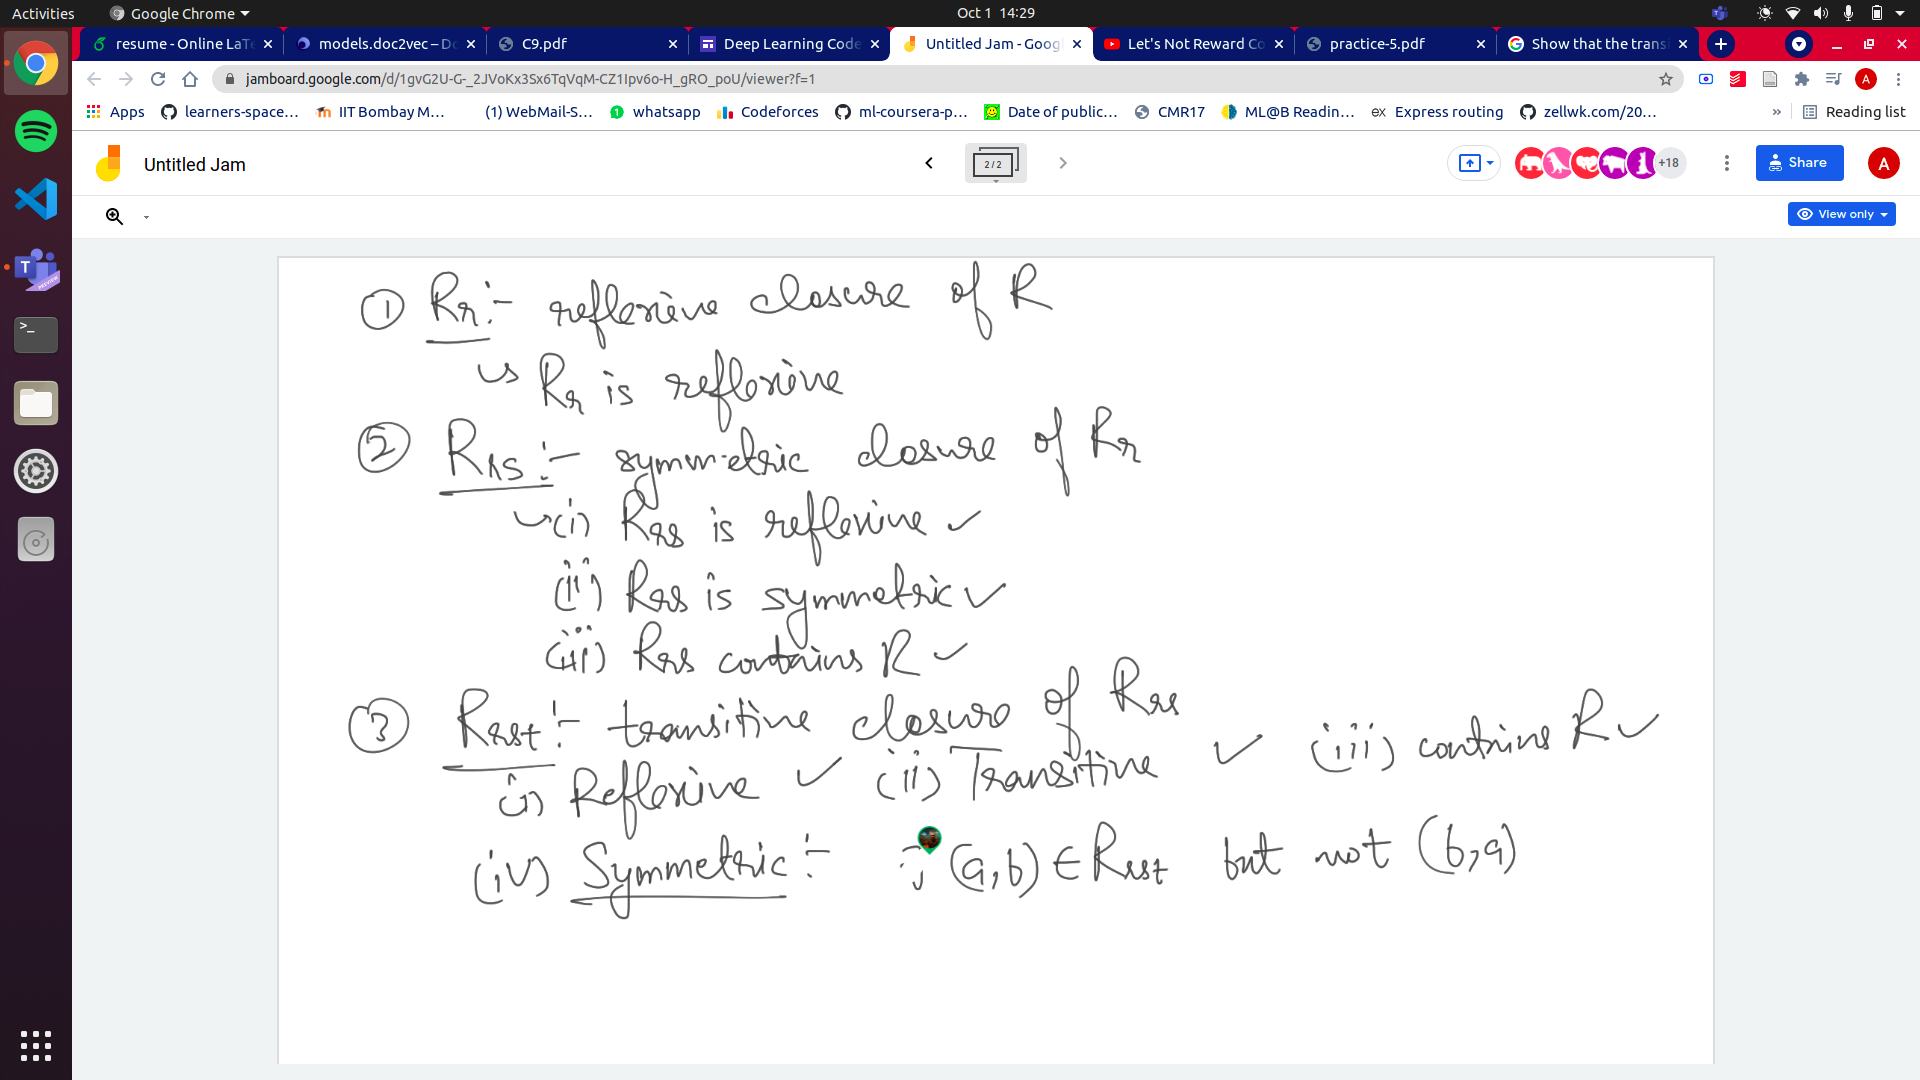 Activities Google Chrome Oct 1 14:29
resume - Online LaTe models.doc2vec – Do C9.pdf Deep Learning Code Untitled Jam - Goog Let's Not Reward Co practice-5.pdf Show that the transi
jamboard.google.com/d/1gvG2U-G-_2JVoKx3Sx6TqVqM-CZ1Ipv6o-H_gRO_poU/viewer?f=1
Apps learners-space... IIT Bombay M... (1) WebMail-S... whatsapp Codeforces ml-coursera-p... Date of public... CMR17 ML@B Readin... Express routing zellwk.com/20... » Reading list
Untitled Jam 2 / 2 +18 Share A
View only
① Rr :- reflexive closure of R
↳ Rr is reflexive
② Rrs :- symmetric closure of Rr
↳ (i) Rrs is reflexive ✓
(ii) Rrs is symmetric ✓
(iii) Rrs contains R ✓
③ Rrst :- transitive closure of Rrs
(i) Reflexive ✓ (ii) Transitive ✓ (iii) contains R ✓
(iv) Symmetric :- (a,b) ∈ Rrst but not (b,a)